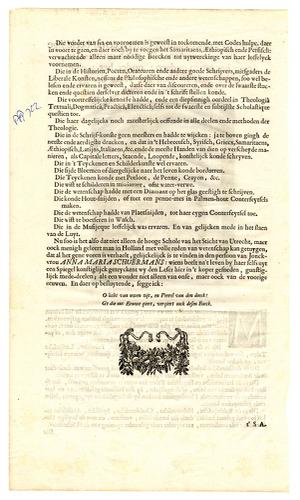 Die vonder van sin en voornemen is geweest in toekomende, met Godes hulpe, daer
in voort te gaen, en daer noch by te voegen het Samaritaens, Æthiopisch en Persisch:
verwachtende alleen maer noodige Boecken tot uytwerckinge van haer loffelyck
voornemen.
Die in de Historien, Poëten, Oratouren ende andere goede Schrijvers, mitsgaders de
Liberale Konsten, nefens de Philosophische ende andere wetenschappen, soo wel be-
lesen ende ervaren is geweest, datse daer van discoureren, ende over de swaerste stuc-
ken ende questien derselver dicteren ende in 't Schrift stellen konde.
Die voortreffelijcke kennisse hadde, ende een diepsinnigh oordeel in Theologiâ
Textuali, Dogmatica, Practica, Elenctica, selfs tot de swaerste en subtijlste Scholastique
questien toe.
Die haer dagelijcks noch meesterlijck oeffende in alle deelen ende methoden der
Theologie.
Die in de Schrijf-konste geen meesters en hadde te wijcken: jate boven gingh de
neerstende aerdigste drucken, en dat in 't Hebreeusch, Syrisch, Griecx, Samaritaens,
Æthiopisch, Latijn, Italiaens, &c. ende de meeste Handen van dien op verscheyde ma-
nieren, als Capitale letters, Staende, Loopende, konstelijck konde schryven.
Die in 't Teyckenen en Schilderkonst wel ervaren.
Die sijde Bloemen of diergelijcke naer het leven konde borduren.
Die Teyckenen konde met Potloot, de Penne, Crayon, &c.
Die wist te schilderen in miniature, oste water-verwe.
Die de wetenschap hadde met een Diamant op het glas geestigh te schrijven.
Die konde Hout-snijden, of met een penne-mes in Palmen-hout Conterfeytsels
maken.
Die de wetenschap hadde van Plaetsnijden, tot haer eygen Conterfeytsel toe.
Die wist te boetseren in Wasch.
Die in de Musijcque loffelijck was ervaren. En van gelijcken mede in het slaen
van de Luyt.
Nu soo is het also dat niet alleen de hooge Schole van het Sticht van Utrecht, maer
oock menigh geleert man in Holland met volle reden van wetenschap kan getuygen,
dat al het gene voren is verhaelt, geluckelijck is te vinden in den persoon van Jonck-
vrou ANNA MARIA SCHUERMANS: wiens beelt na't leven by haer selfs uyt
een Spiegel konstiglijck geteyckent wy den Leser hier in 't koper gesneden, gunstig-
lijck mede-deelen; als een wonder niet alleen van onse, maer oock van de voorige
eeuwen. En daer op besluytende, seggen ick:
O licht van uwen tijt, en Peerel van den onse!
t' S A.